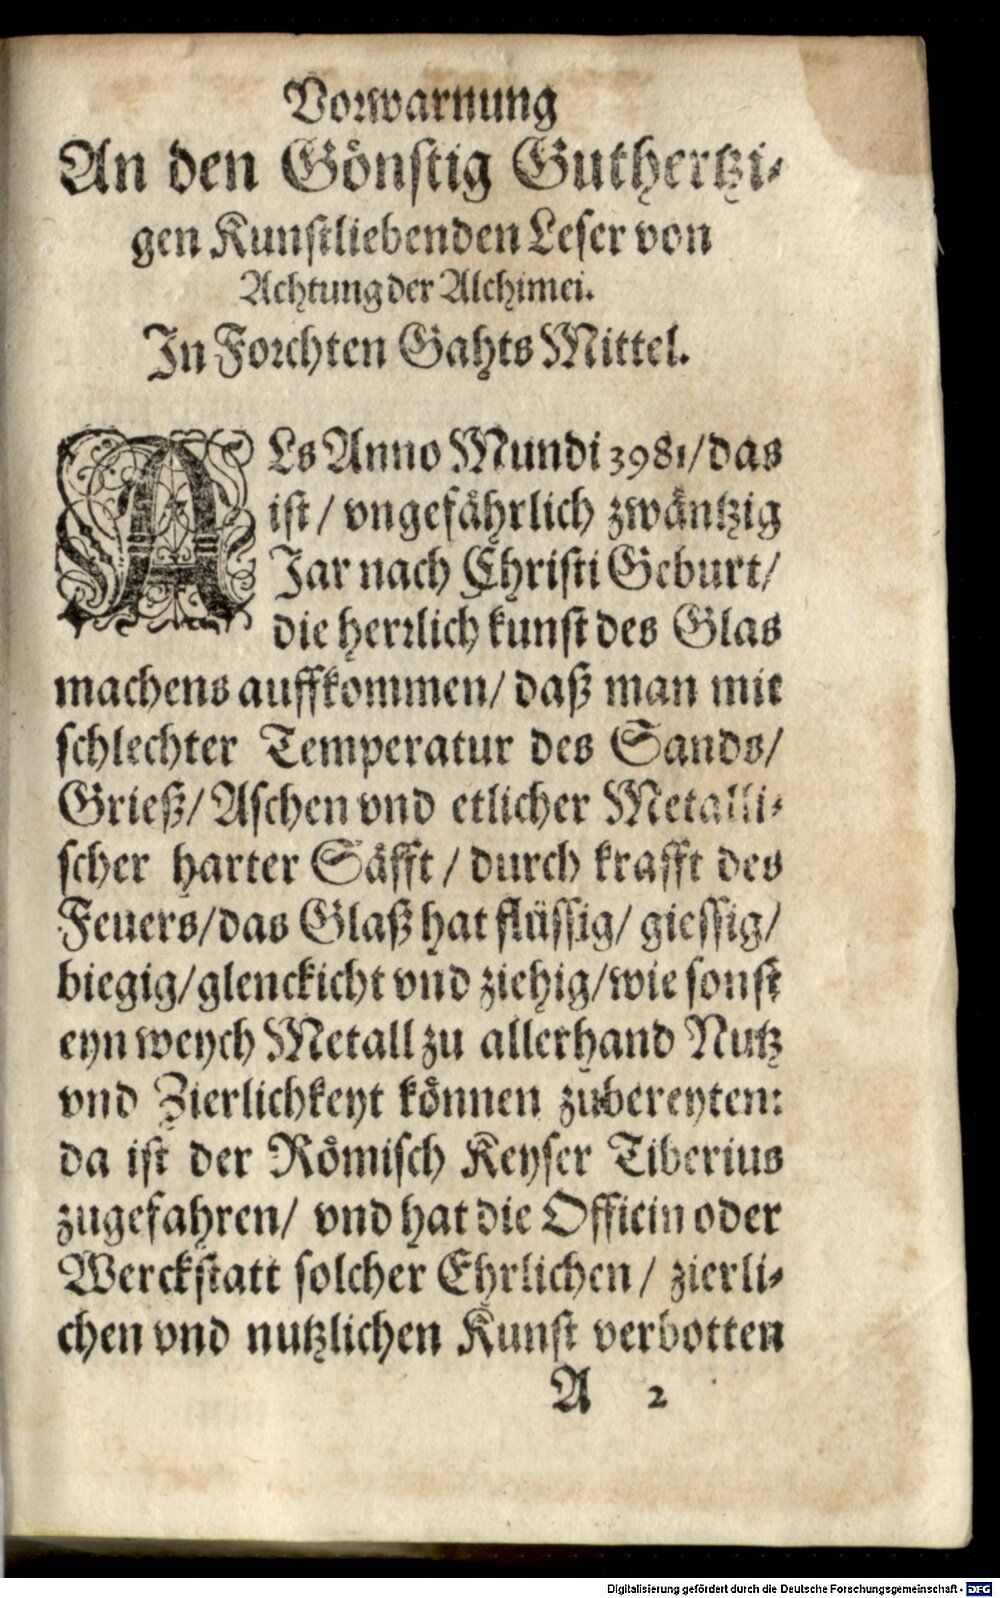 Vorwarnung
An den Gönstig Guthertzi⸗
gen Kunstliebenden Leser von
Achtung der Alchimei.
In Forchten Gahts Mittel.
ALs Anno Mundi 3981/das
ist/ vngefährlich zwäntzig
Jar nach Christi Geburt/
die herrlich kunst des Glas
machens auffkommen/ daß man mit
schlechter Temperatur des Sands/
Grieß/Aschen vnd etlicher Metalli⸗
scher harter Säfft/ durch krafft des
Feuers/das Glaß hat flüssig/ giessig/
biegig/glenckicht vnd ziehig/wie sonst
eyn weych Metall zu allerhand Nutz
vnd Zierlichkeyt können zubereyten:
da ist der Römisch Keyser Tiberius
zugefahren/ vnd hat die Officin oder
Werckstatt solcher Ehrlichen/ zierli⸗
chen vnd nutzlichen Kunst verbotten
A 2
Digitalisierung gefördert durch die Deutsche Forschungsgemeinschaft - DFG